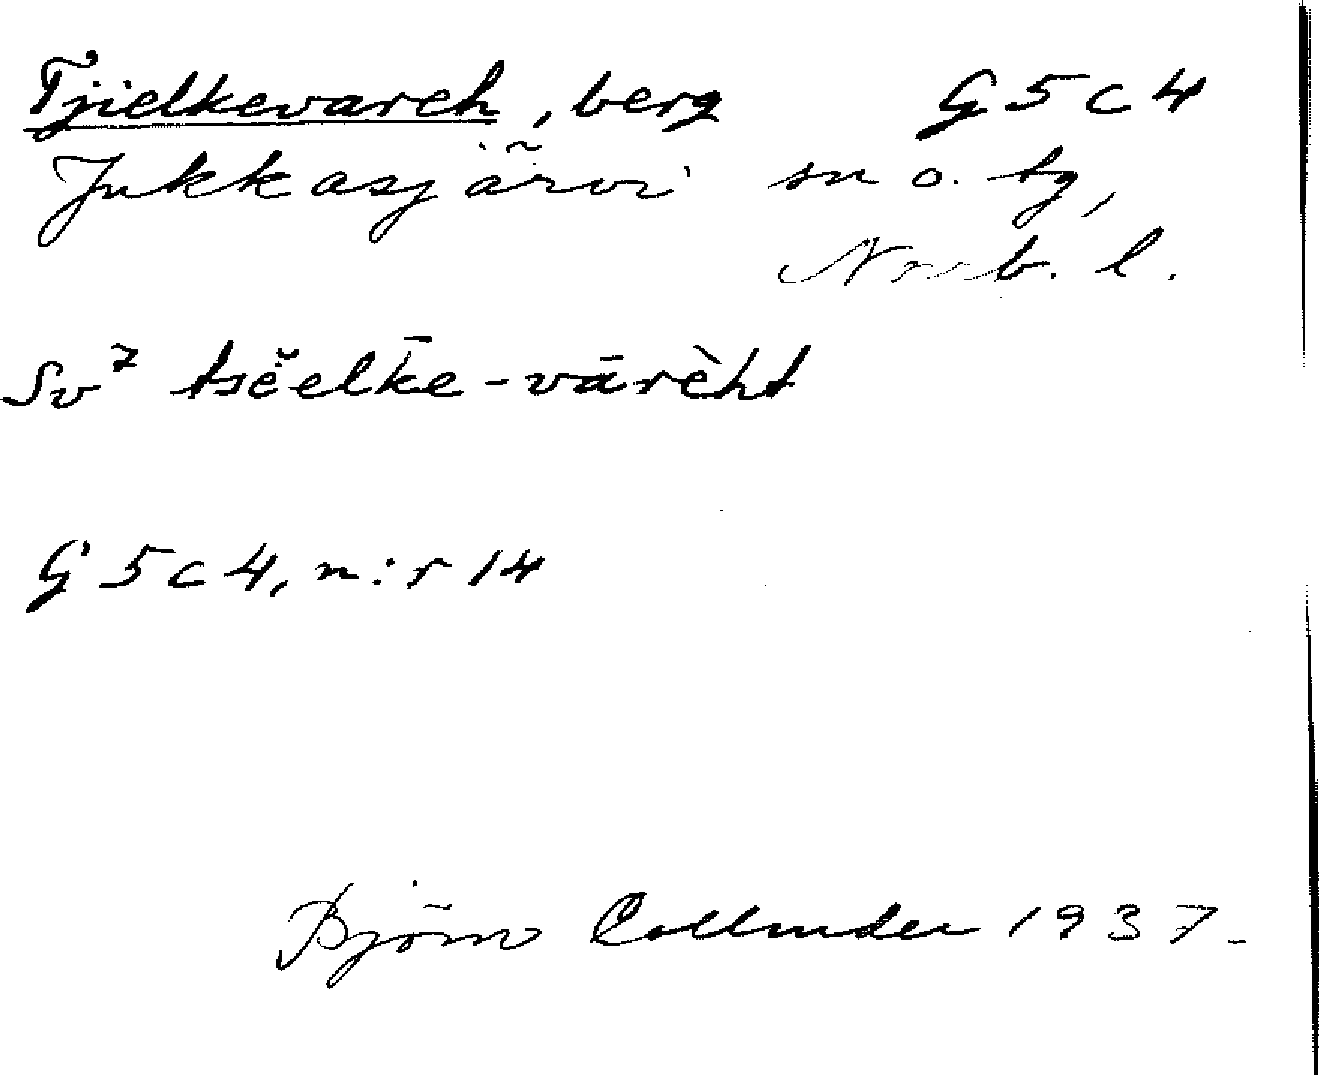 Tjielkevareh, berg G5c4
Jukkasjärvi sn o. tg,
Norrb. l.
Sv⁷ tsĕelk̄e-vārèht
G5c4, n:r 14
Björn Collinder 1937.